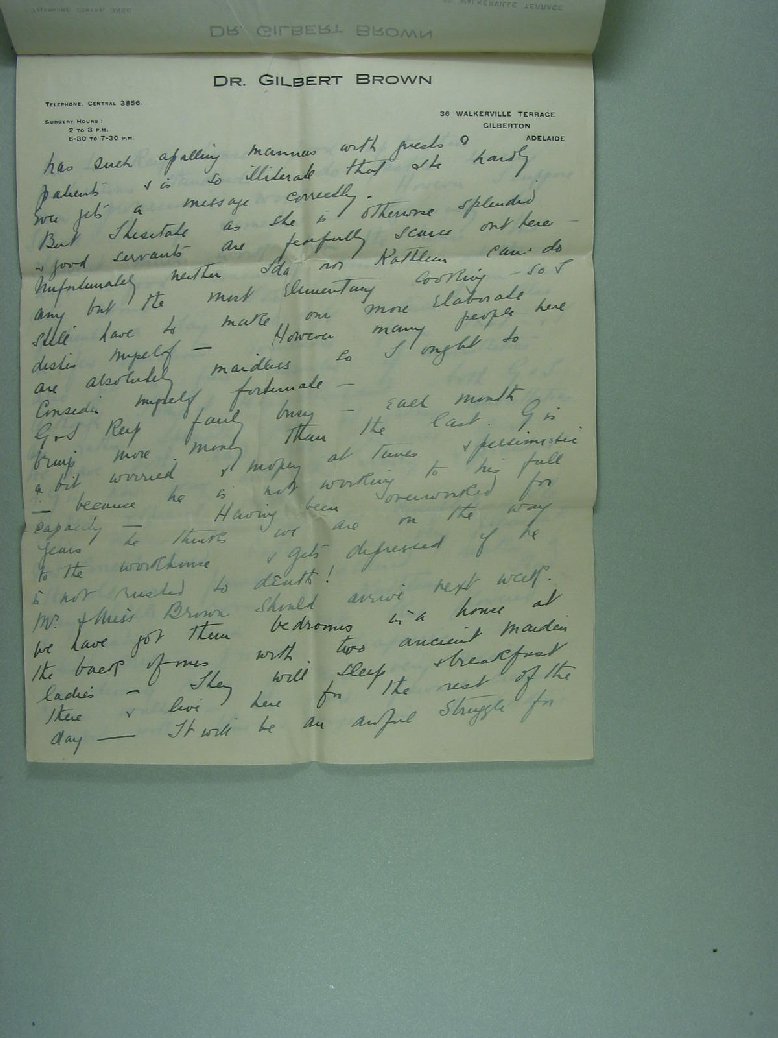 DR. GILBERT BROWN
TELEPHONE, CENTRAL 3856
SURGERY HOURS:
2 TO 3 P.M.
6-30 TO 7-30 P.M.
36 WALKERVILLE TERRACE
GILBERTON
ADELAIDE
has such apalling manners with guests &
patients & is so illiterate that she hardly
ever gets a message correctly.
But I hesitate as she is otherwise splendid
& good servants are fearfully scarce out here -
Unfortunately neither Ida nor Kathleen can do
any but the most elementary cooking - so I
still have to make our more elaborate
dishes myself - However many people here
are absolutely maidless so I ought to
consider myself fortunate -
G & S keep fairly busy - each month
brings more money than the last. G is
a bit worried & mopey at times & pessimistic
- because he is not working to his full
capacity - Having been overworked for
years he thinks we are on the way
to the workhouse & gets depressed if he
is not rushed to death!
Mr & Miss Brown should arrive next week.
We have got them bedrooms in a house at
the back of ours with two ancient maiden
ladies - They will sleep & breakfast
there & live here for the rest of the
day - It will be an awful struggle for